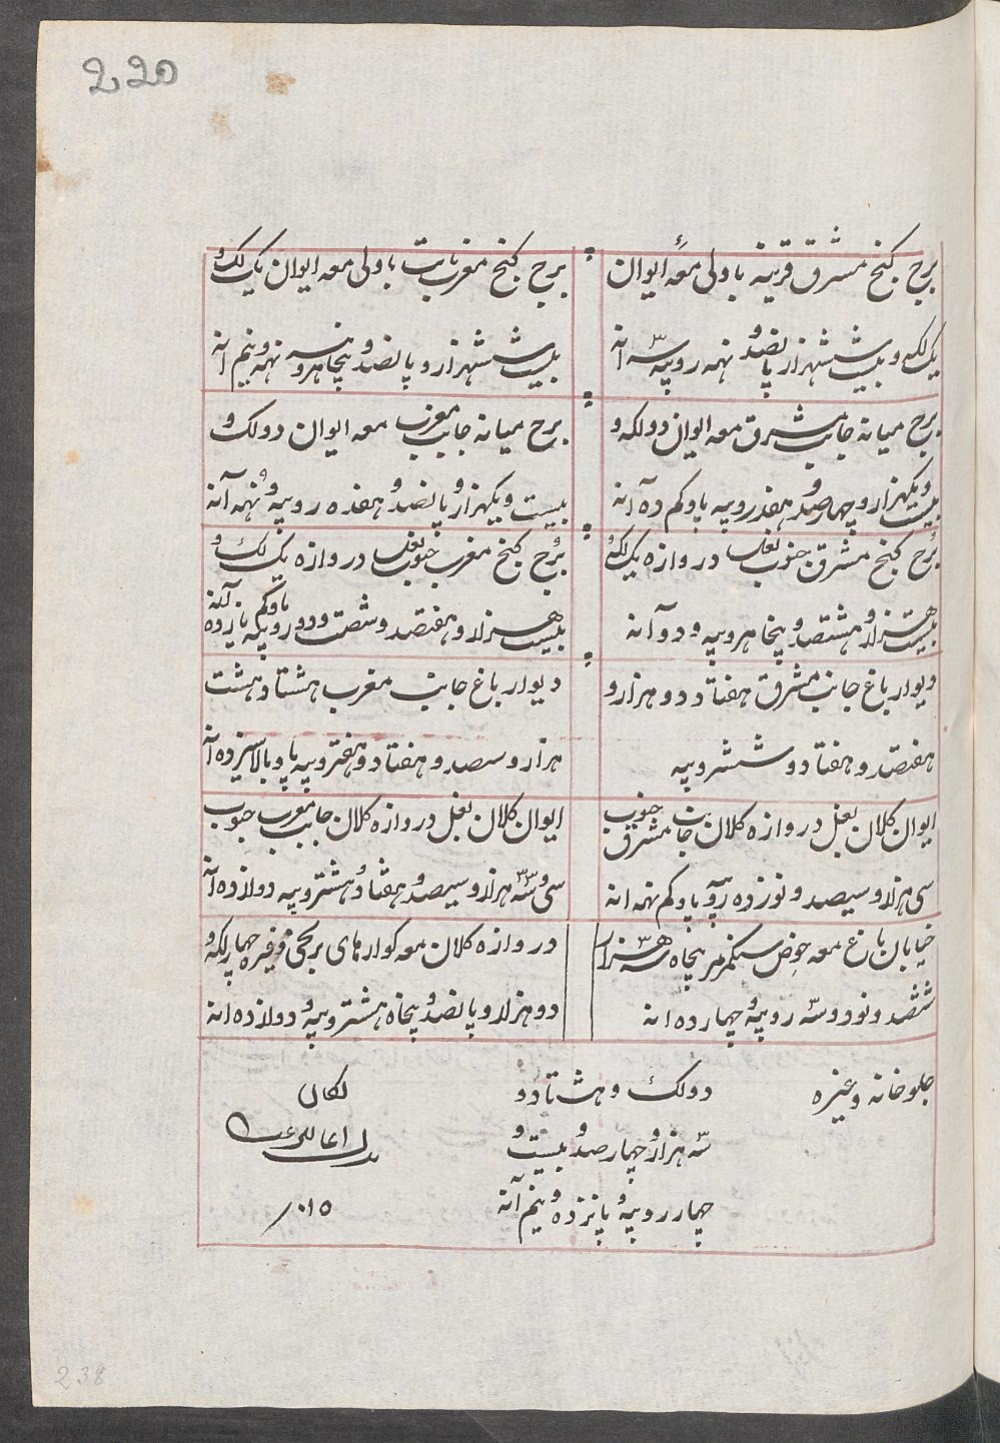 220
برج کنج مشرق قرینهٔ باولی معه ایوان
یک لکه و بیست ششهزار پانصد و نهه روپیه سه آنه
برج کنج مغرب بابت باولی معه ایوان یک لک و
بیست ششهزار و پانصد و پنجاه روپیه نهه و نیم آنه
برج میانه جانب مشرق معه ایوان دو لکه و
بیست و یکهزار و چهارصد و هفده روپیه پاو کم ده آنه
برج میانه جانب مغرب معه ایوان دو لک و
بیست و یکهزار و پانصد و هفده روپیه و نهه آنه
برج کنج مشرق جنوب بغل دروازه یک لکه و
بیست هزار و هشتصد و پنجاه روپیه و دو آنه
برج کنج مغرب جنوب بغل دروازه یک لک و
بیست هزار و هفتصد و شصت و دو روپیه پاو کم یازده آنه
دیوار باغ جانب مشرق هفتاد دو هزار و
هفتصد و هفتاد و شش روپیه
دیوار باغ جانب مغرب هشتاد هشت
هزار و سصد و هفتاد و هفت روپیه پاو بالا سیزده آنه
ایوان کلان بغل دروازه کلان جانب جنوب مشرق
سی هزار و سیصد و نوزده روپیه پاو کم نهه انه
ایوان کلان بغل دروازه کلان جانب مغرب جنوب
سی و سه هزار و سیصد و هفتاد و هشت روپیه دوازده آنه
خیابان باغ معه حوض سنگ مرمر پنجاه سه هزار
ششصد و نود و سه روپیه و چهارده انه
دروازه کلان معه کوارهای برنجی وغیره چهار لکه و
دو هزار و پانصد و پنجاه هشت روپیه و دوازده انه
جلوخانه وغیره
دو لک و هشتاد و
سه هزار و چهارصد و بیست و
چهار روپیه و پانزده و نیم آنه
۰۱۵
238